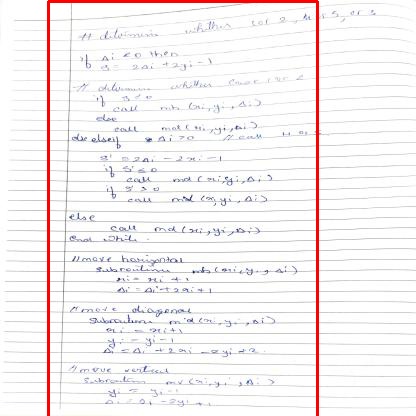 // determine whether 1 or 2, 4, 5, or 3
if Δi < 0 then
δ = 2Δi + 2yi - 1
// determine whether case 1 or 2
if δ ≤ 0
call mh (xi, yi, Δi)
else
call md (xi, yi, Δi)
else if Δi > 0 // call
δ' = 2Δi - 2xi - 1
if δ' ≤ 0
call md (xi, yi, Δi)
if δ' > 0
call mv (xi, yi, Δi)
else
call md (xi, yi, Δi)
end while.
// move horizontal
subroutine mh (xi, yi, Δi)
xi = xi + 1
Δi = Δi + 2xi + 1
// move diagonal
subroutine md (xi, yi, Δi)
xi = xi + 1
yi = yi - 1
Δi = Δi + 2xi - 2yi + 2.
// move vertical
subroutine mv (xi, yi, Δi)
yi = yi - 1
Δi = Δi - 2yi + 1